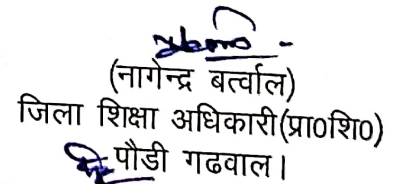 (नागेन्द्र बर्त्वाल)
जिला शिक्षा अधिकारी(प्रा०शि०)
पौडी गढवाल।